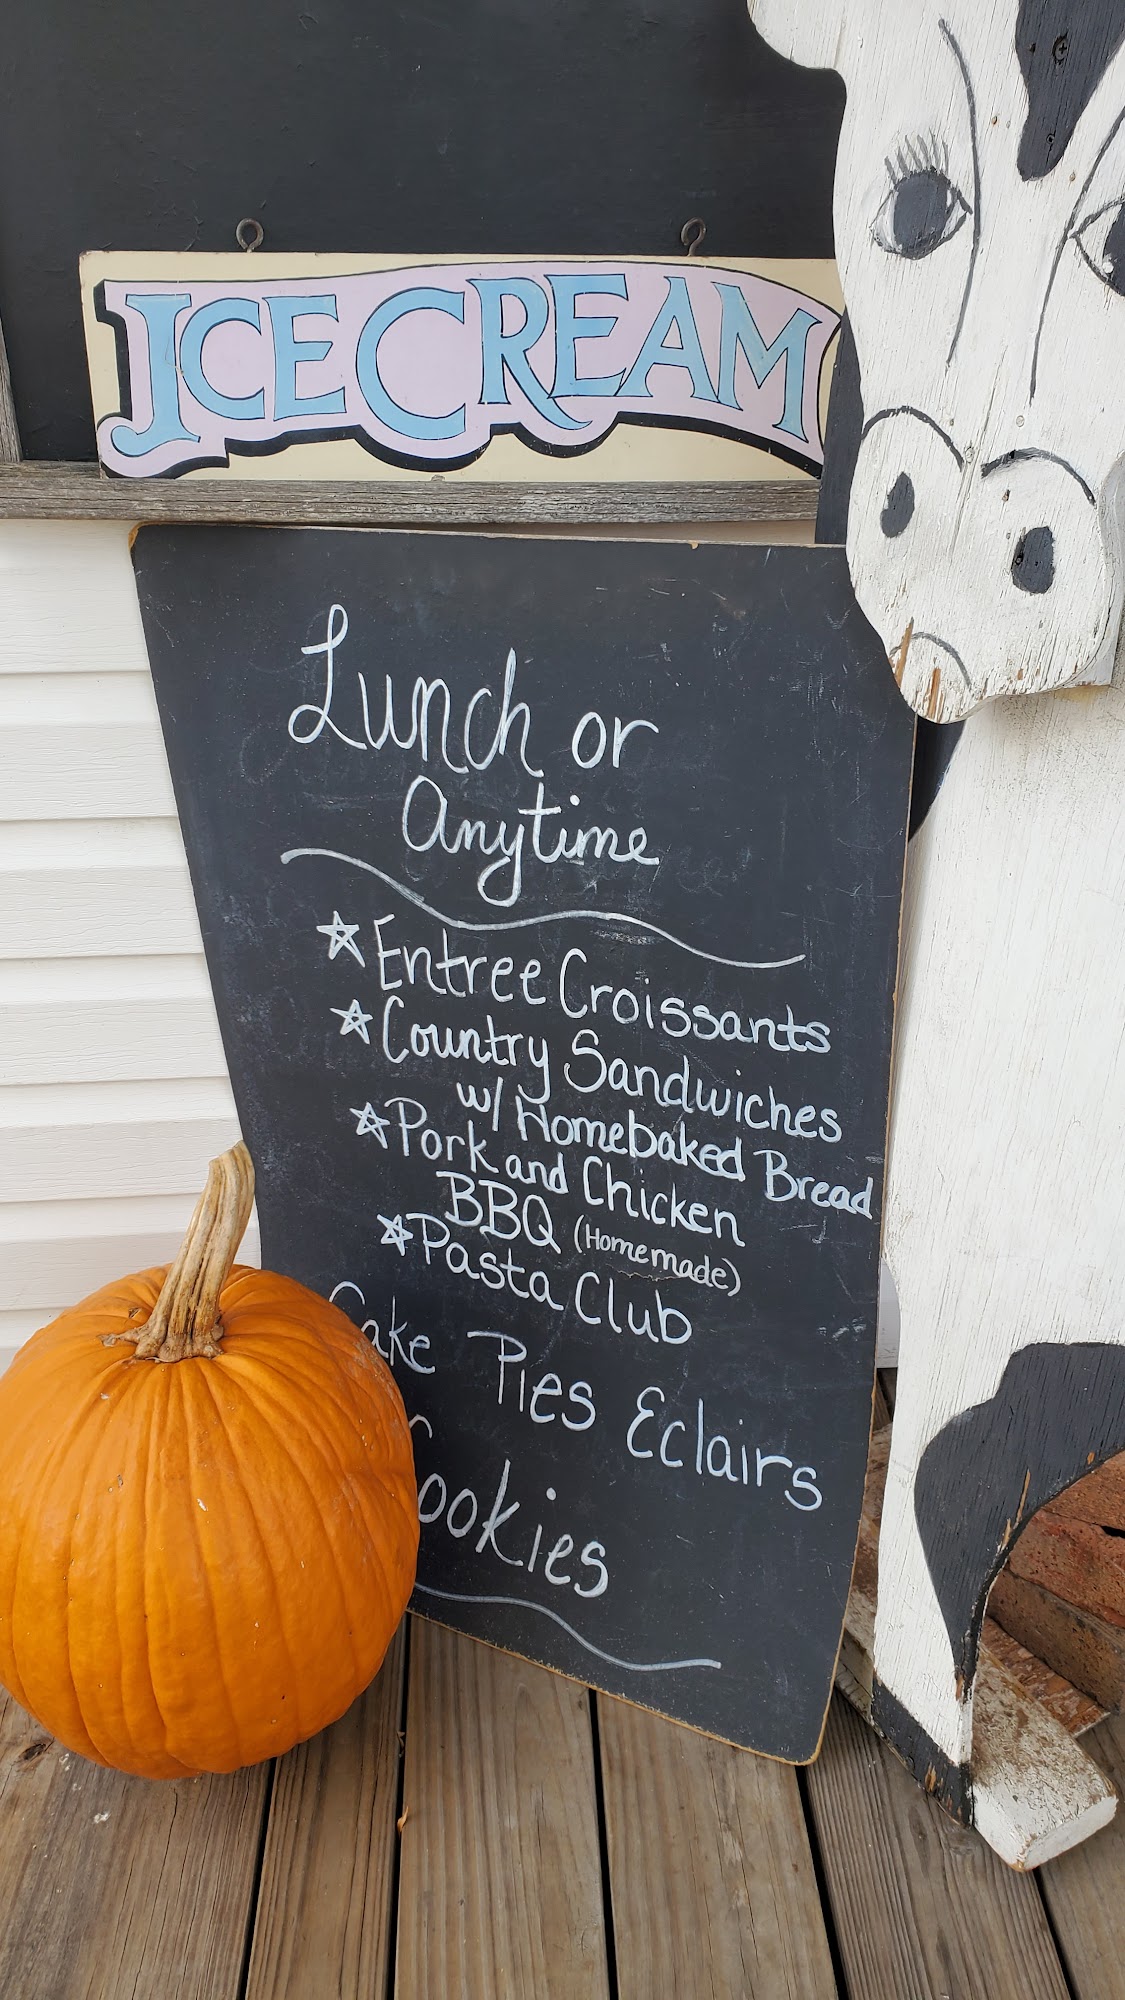 ICE CREAM
Lunch or
Anytime
Entree Croissants
Country Sandwiches
w/ Homebaked Bread
Pork and Chicken
BBQ (Homemade)
Pasta Club
Cake Pies Eclairs
Cookies